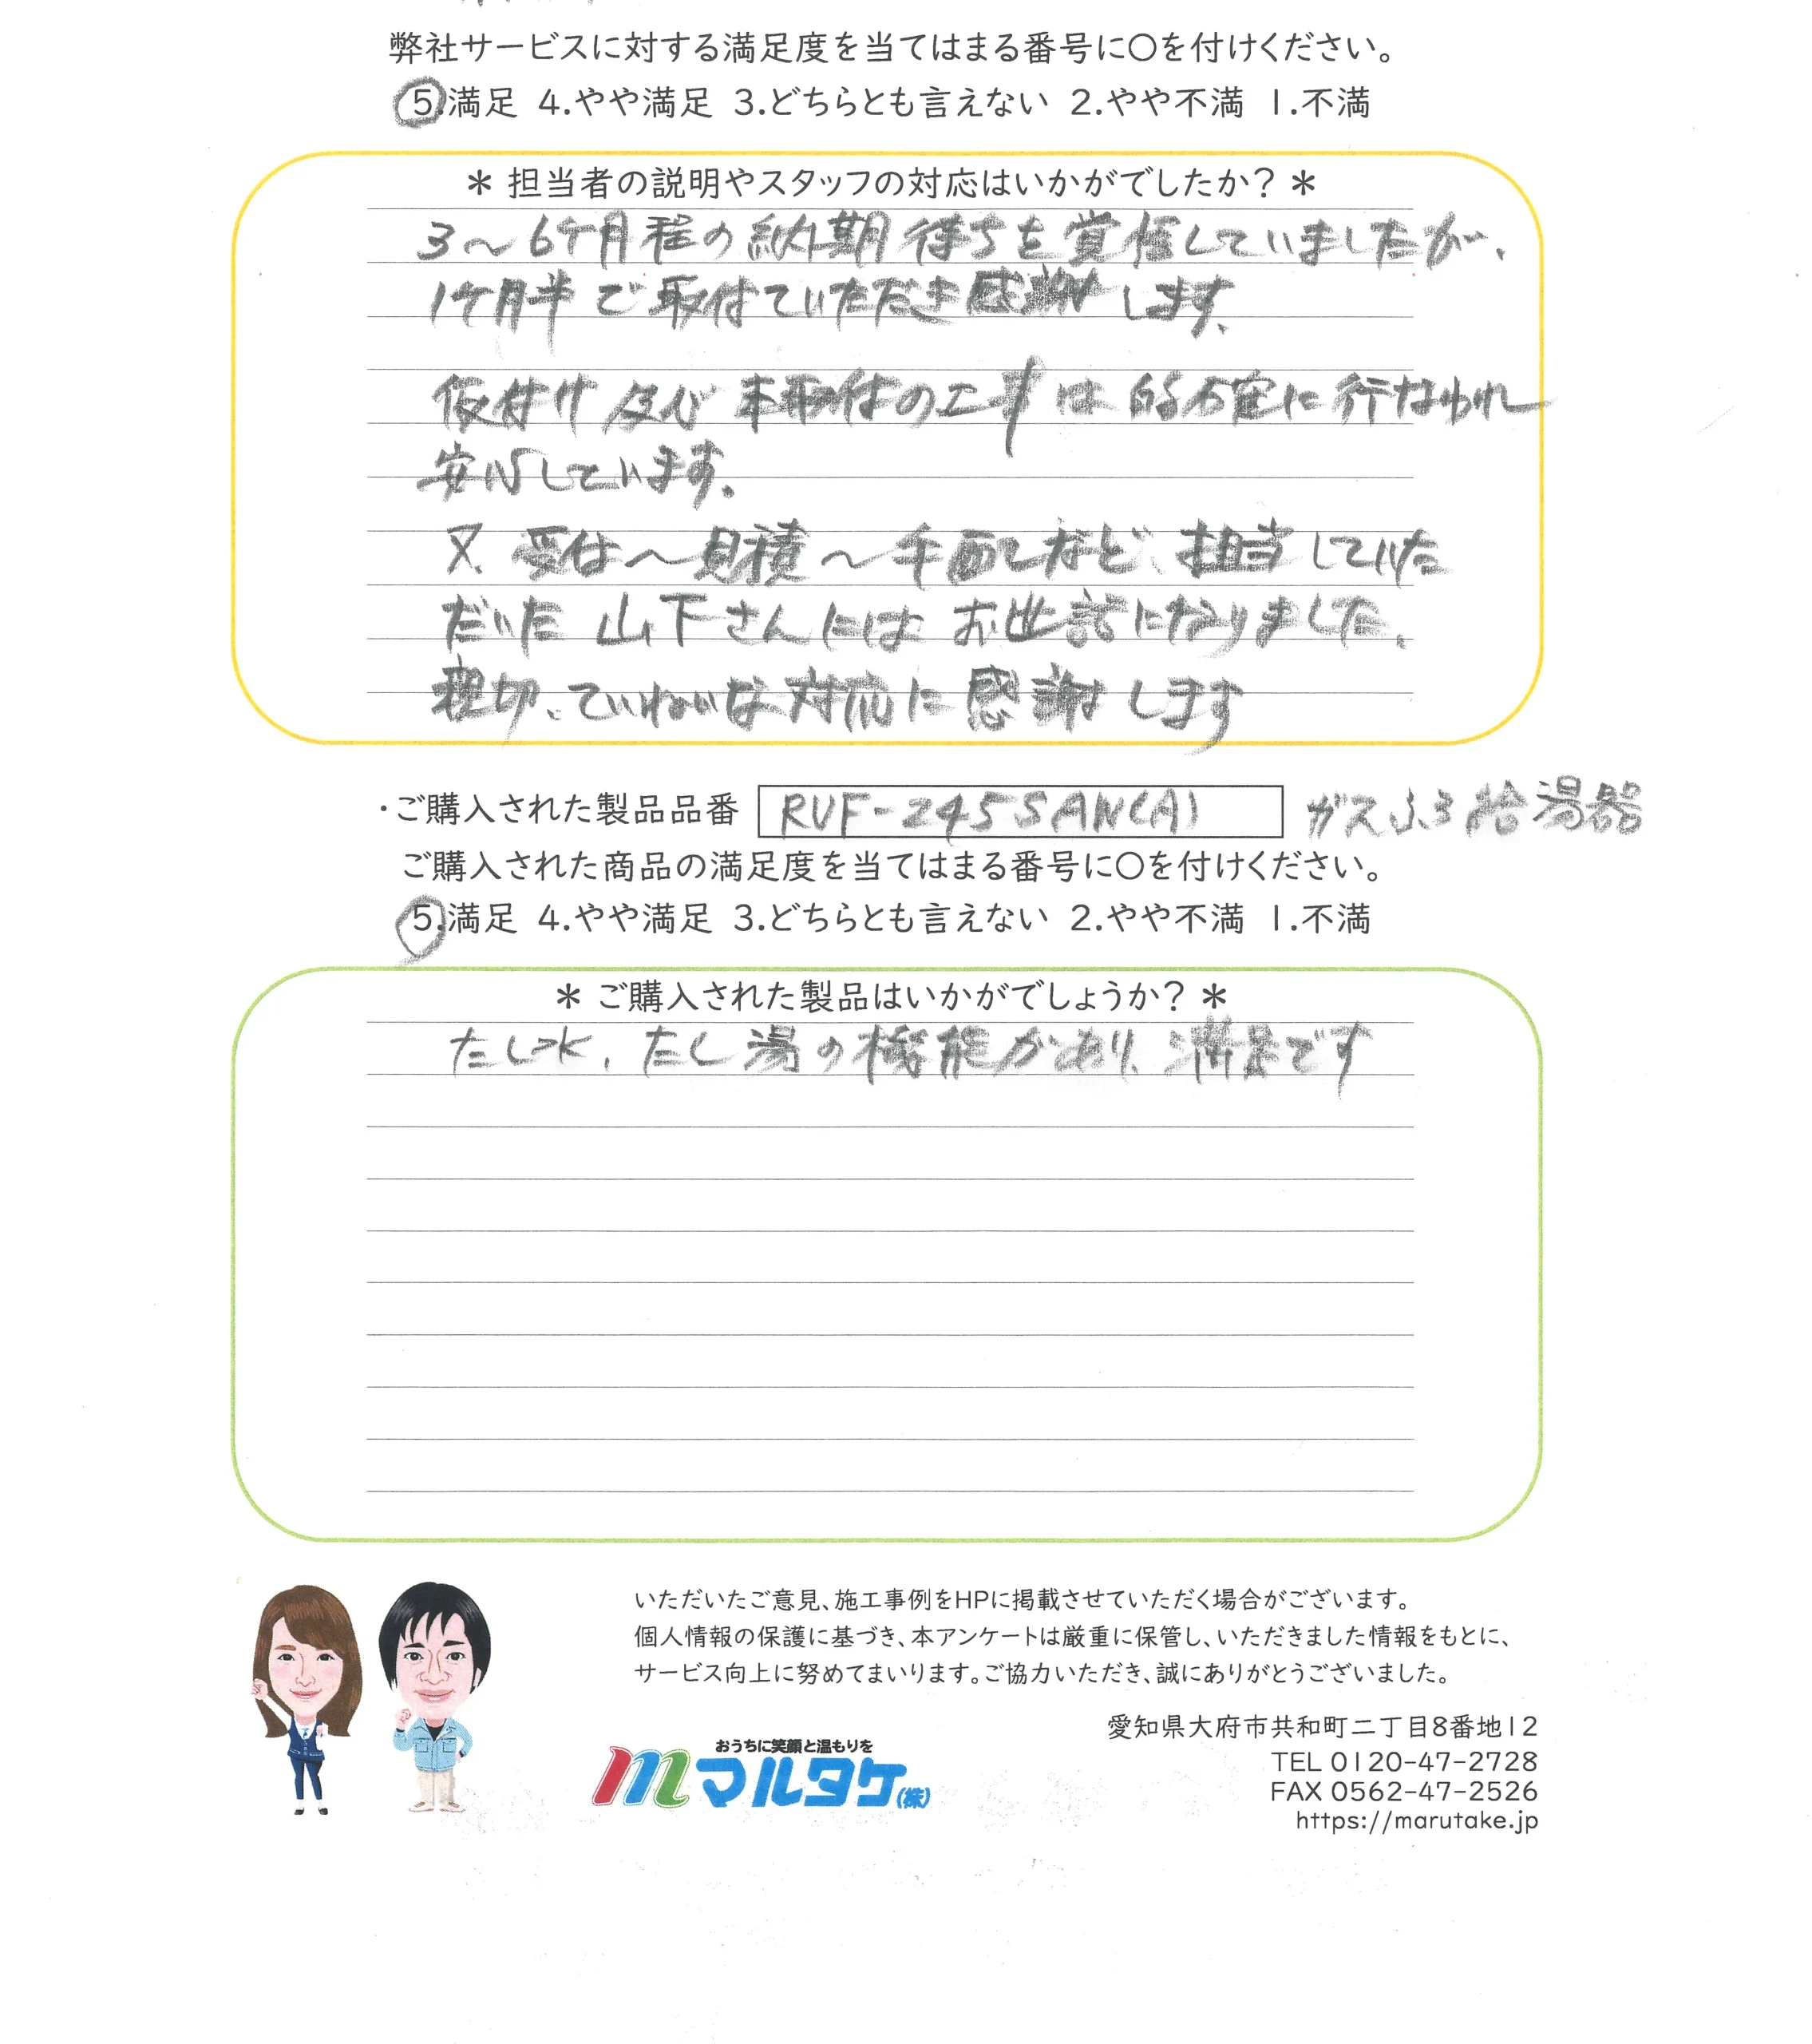 弊社サービスに対する満足度を当てはまる番号に〇を付けください。
5.満足 4.やや満足 3.どちらとも言えない 2.やや不満 1.不満
＊ 担当者の説明やスタッフの対応はいかがでしたか? ＊
3～6ケ月程の納期待ちを覚悟していましたが、
1ケ月半で取付ていただき感謝します。
仮付け及び本取付の工事は的確に行なわれ
安心しています。
又、受付～見積～手配など、担当していた
だいた山下さんにはお世話になりました。
親切、ていねいな対応に感謝します
・ご購入された製品品番 RUF-245SAW(A) ガスふろ給湯器
ご購入された商品の満足度を当てはまる番号に〇を付けください。
5.満足 4.やや満足 3.どちらとも言えない 2.やや不満 1.不満
＊ ご購入された製品はいかがでしょうか? ＊
たし水、たし湯の機能があり、満足です
いただいたご意見、施工事例をHPに掲載させていただく場合がございます。
個人情報の保護に基づき、本アンケートは厳重に保管し、いただきました情報をもとに、
サービス向上に努めてまいります。ご協力いただき、誠にありがとうございました。
おうちに笑顔と温もりを
m マルタケ(株)
愛知県大府市共和町二丁目8番地12
TEL 0120-47-2728
FAX 0562-47-2526
https://marutake.jp